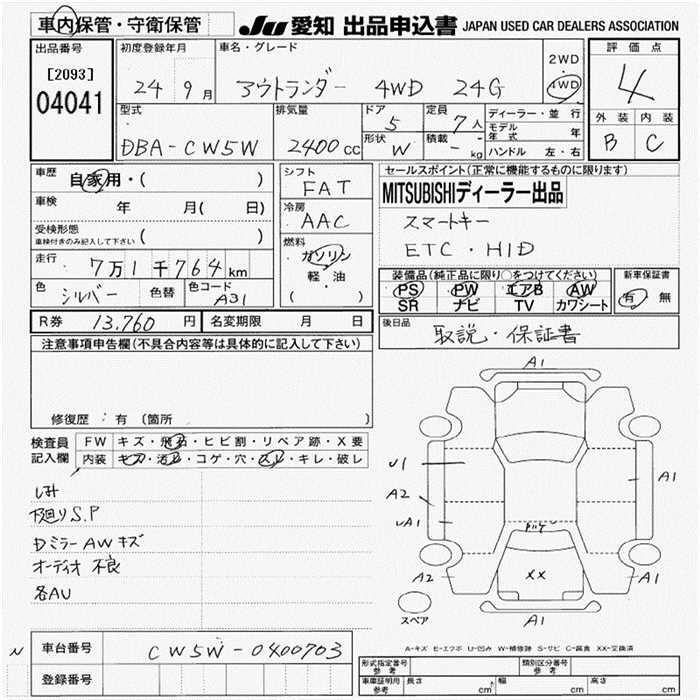 車内保管・守衛保管
JU 愛知 出品申込書 JAPAN USED CAR DEALERS ASSOCIATION
出品番号
[2093]
04041
初度登録年月
24 9 月
車名・グレード
アウトランダー 4WD 24G
2WD
・
4WD
評価点
4
外装 内装
B C
型式
DBA-CW5W
排気量
2400 CC
ドア
5
形状
W
定員
7 人
積載
- kg
ディーラー・並行
モデル年式 年
ハンドル 左・右
車歴
自家用・( )
車検
年 月( 日)
受検形態
車検付きのみ記入して下さい ( )
走行
7万1千764 km
色
シルバー
色替
色コード
A31
シフト
FAT
冷房
AAC
燃料
ガソリン
軽・油
( )
セールスポイント(正常に機能するものに限ります)
MITSUBISHIディーラー出品
スマートキー
ETC・HID
装備品(純正品に限り○をつけてください)
PS PW エアB AW
SR ナビ TV カワシート
新車保証書
有 無
R券 13,760 円
名変期限 月 日
後日品
取説・保証書
注意事項申告欄(不具合内容等は具体的に記入して下さい)
修復歴:有 (箇所
検査員
記入欄
FW キズ・飛石・ヒビ割・リペア跡・X要
内装 キズ・汚レ・コゲ・穴・スレ・キレ・破レ
しみ
下廻りS.P
Dミラー AWキズ
オーディオ 不良
各AU
A1
U1
A1
A2
UA1
XX
A2
A1
A1
スペア
A-キズ E-エクボ U-凹み W-補修跡 S-サビ C-腐食 XX-交換済
N
車台番号
CW5W-0400703
登録番号
形式指定番号
参考
類別区分番号
参考
車庫証明用
参考
長さ cm
幅 cm
高さ cm